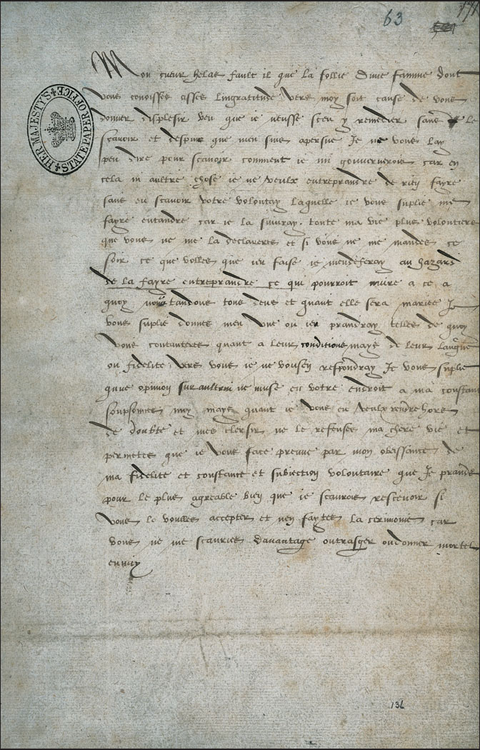 63
Mon cueur helas fault il que la follie dune famme dont
vous connoisses asses lingratitude vers moy soit cause de vous
donner displesir veu que ie neusse sceu y remedier sans le
scavoir et despuis que men suis apersue Je ne vous lay
peu dire pour scavoir comment ie mi gouvernerois car en
cela ni aultre chose ie ne veulx entreprandre de rien fayre
sans en scavoir votre volontay laquelle ie vous suplie me
fayre entandre car ie la suivray toute ma vie plus volontiers
que vous ne me la declareres et si vous ne me mandes ce
soir ce que volles que ien faise ie mendeferay au hazard
de la fayre entreprandre ce qui pourroit nuire a ce a
quoy nous tandons tous deus et quant elle sera mariee Je
vous suplie donnes men une ou ien prandray telles de quoy
vous contanteres quant a leur conditions mays de leur langue
ou fidelite vers vous ie ne vousen respondray Je vous suplie
quune opinion sur aultrui ne nuise en votre endroit a ma constance
soupsonnes moy mays quant ie vous en veulx rendre hors
de doubte et mesclersir ne le refeuses ma chere vie et
permettes que ie vous face preuve par mon obeissance de
ma fidelite et constance et subiection volontaire que Je prands
pour le plus agreable bien que ie scaurois rescevoir si
vous le voulles accepter et nen faytes la cerimonie car
vous ne me scauries davantage outrasger ou donner mortel
ennuy
HER MAJESTY'S STATE PAPER OFFICE
136